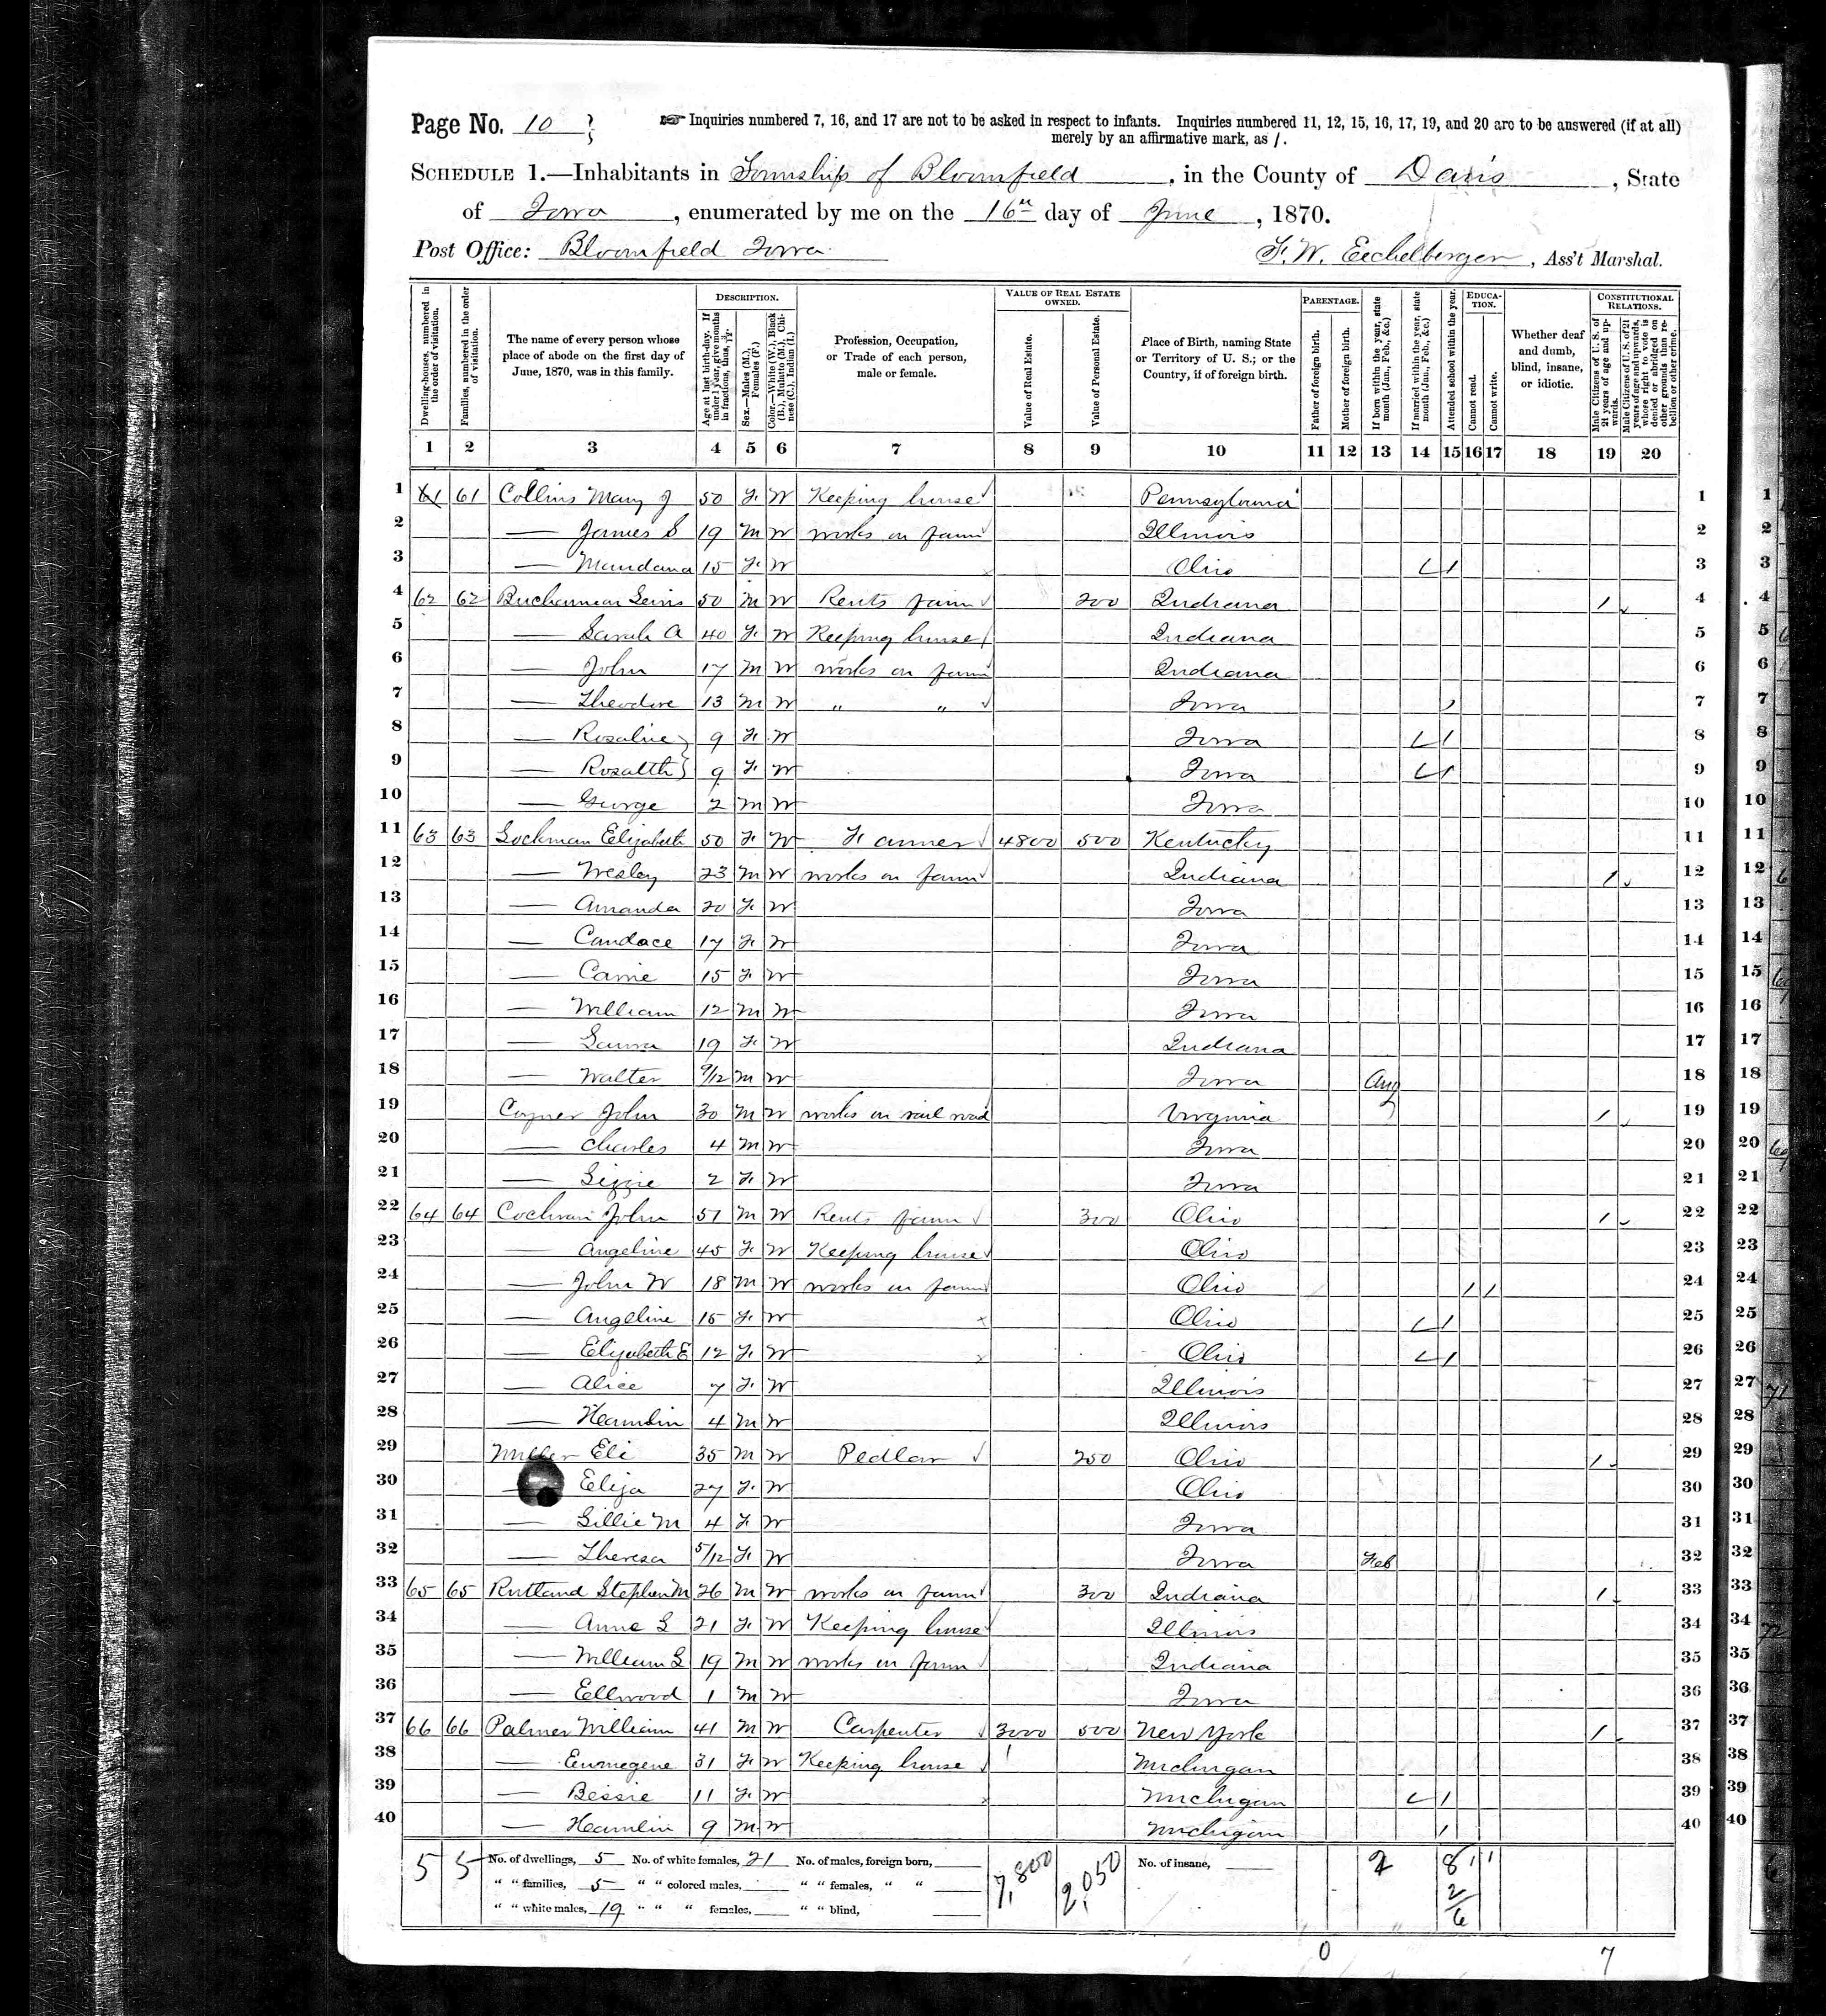 Page No. 10
Inquiries numbered 7, 16, and 17 are not to be asked in respect to infants. Inquiries numbered 11, 12, 15, 16, 17, 19, and 20 are to be answered (if at all)
merely by an affirmative mark, as /.
SCHEDULE 1.—Inhabitants in Township of Bloomfield, in the County of Davis, State
of Iowa, enumerated by me on the 16th day of June, 1870.
Post Office: Bloomfield Iowa F. W. Eichelberger, Ass't Marshal.
Dwelling-houses, numbered in the order of visitation.
Families, numbered in the order of visitation.
The name of every person whose place of abode on the first day of June, 1870, was in this family.
DESCRIPTION.
Age at last birth-day. If under 1 year, give months in fractions, thus, 3/12
Sex.—Males (M.), Females (F.)
Color.—White (W.), Black (B.), Mulatto (M.), Chinese (C.), Indian (I.)
Profession, Occupation, or Trade of each person, male or female.
VALUE OF REAL ESTATE OWNED.
Value of Real Estate.
Value of Personal Estate.
Place of Birth, naming State or Territory of U. S.; or the Country, if of foreign birth.
PARENTAGE.
Father of foreign birth.
Mother of foreign birth.
If born within the year, state month (Jan., Feb., &c.)
If married within the year, state month (Jan., Feb., &c.)
Attended school within the year.
EDUCATION.
Cannot read.
Cannot write.
Whether deaf and dumb, blind, insane, or idiotic.
CONSTITUTIONAL RELATIONS.
Male Citizens of U. S. of 21 years of age and upwards.
Male Citizens of U. S. of 21 years of age and upwards, whose right to vote is denied or abridged on other grounds than rebellion or other crime.
1 2 3 4 5 6 7 8 9 10 11 12 13 14 15 16 17 18 19 20
1 61 61 Collins Mary J 50 F W Keeping house Pennsylvania 1
2 — James S 19 M W works on farm Illinois 2
3 — Mandana 15 F W Ohio 1 3
4 62 62 Buchannan Lewis 50 M W Rents farm 200 Indiana 1 4
5 — Sarah A 40 F W Keeping house Indiana 5
6 — John 17 M W works on farm Indiana 6
7 — Theodore 13 M W " " Iowa 1 7
8 — Rosaline 9 F W Iowa 1 8
9 — Rosaltth 9 F W Iowa 1 9
10 — George 2 M W Iowa 10
11 63 63 Lockman Elizabeth 50 F W Farmer 4800 500 Kentucky 11
12 — Wesley 23 M W works on farm Indiana 1 12
13 — Amanda 20 F W Iowa 13
14 — Candace 17 F W Iowa 14
15 — Carrie 15 F W Iowa 15
16 — William 12 M W Iowa 16
17 — Laura 19 F W Indiana 17
18 — Walter 9/12 M W Iowa Aug 18
19 Coyner John 30 M W works on rail road Virginia 1 19
20 — Charles 4 M W Iowa 20
21 — Lizzie 2 F W Iowa 21
22 64 64 Cochran John 57 M W Rents farm 300 Ohio 1 22
23 — Angeline 45 F W Keeping house Ohio 23
24 — John W 18 M W works on farm Ohio 1 1 24
25 — Angeline 15 F W Ohio 1 25
26 — Elizabeth E 12 F W Ohio 1 26
27 — Alice 7 F W Illinois 27
28 — Hamlin 4 M W Illinois 28
29 Miller Eli 35 M W Pedlar 250 Ohio 1 29
30 — Eliza 27 F W Ohio 30
31 — Lillie M 4 F W Iowa 31
32 — Theresa 5/12 F W Iowa Feb 32
33 65 65 Rutland Stephen M 26 M W works on farm 300 Indiana 1 33
34 — Anne L 21 F W Keeping house Illinois 34
35 — William L 19 M W works on farm Indiana 35
36 — Ellwood 1 M W Iowa 36
37 66 66 Palmer William 41 M W Carpenter 3000 500 New York 1 37
38 — Emmegene 31 F W Keeping house Michigan 38
39 — Bessie 11 F W Michigan 1 39
40 — Hamlin 9 M W Michigan 1 40
5 5 No. of dwellings, 5 No. of white females, 21 No. of males, foreign born, 7,800 2,050 No. of insane, 2 8 1 1
" " families, 5 " " colored males, " " females, " " 2
" " white males, 19 " " " females, " " blind, 6
0 7